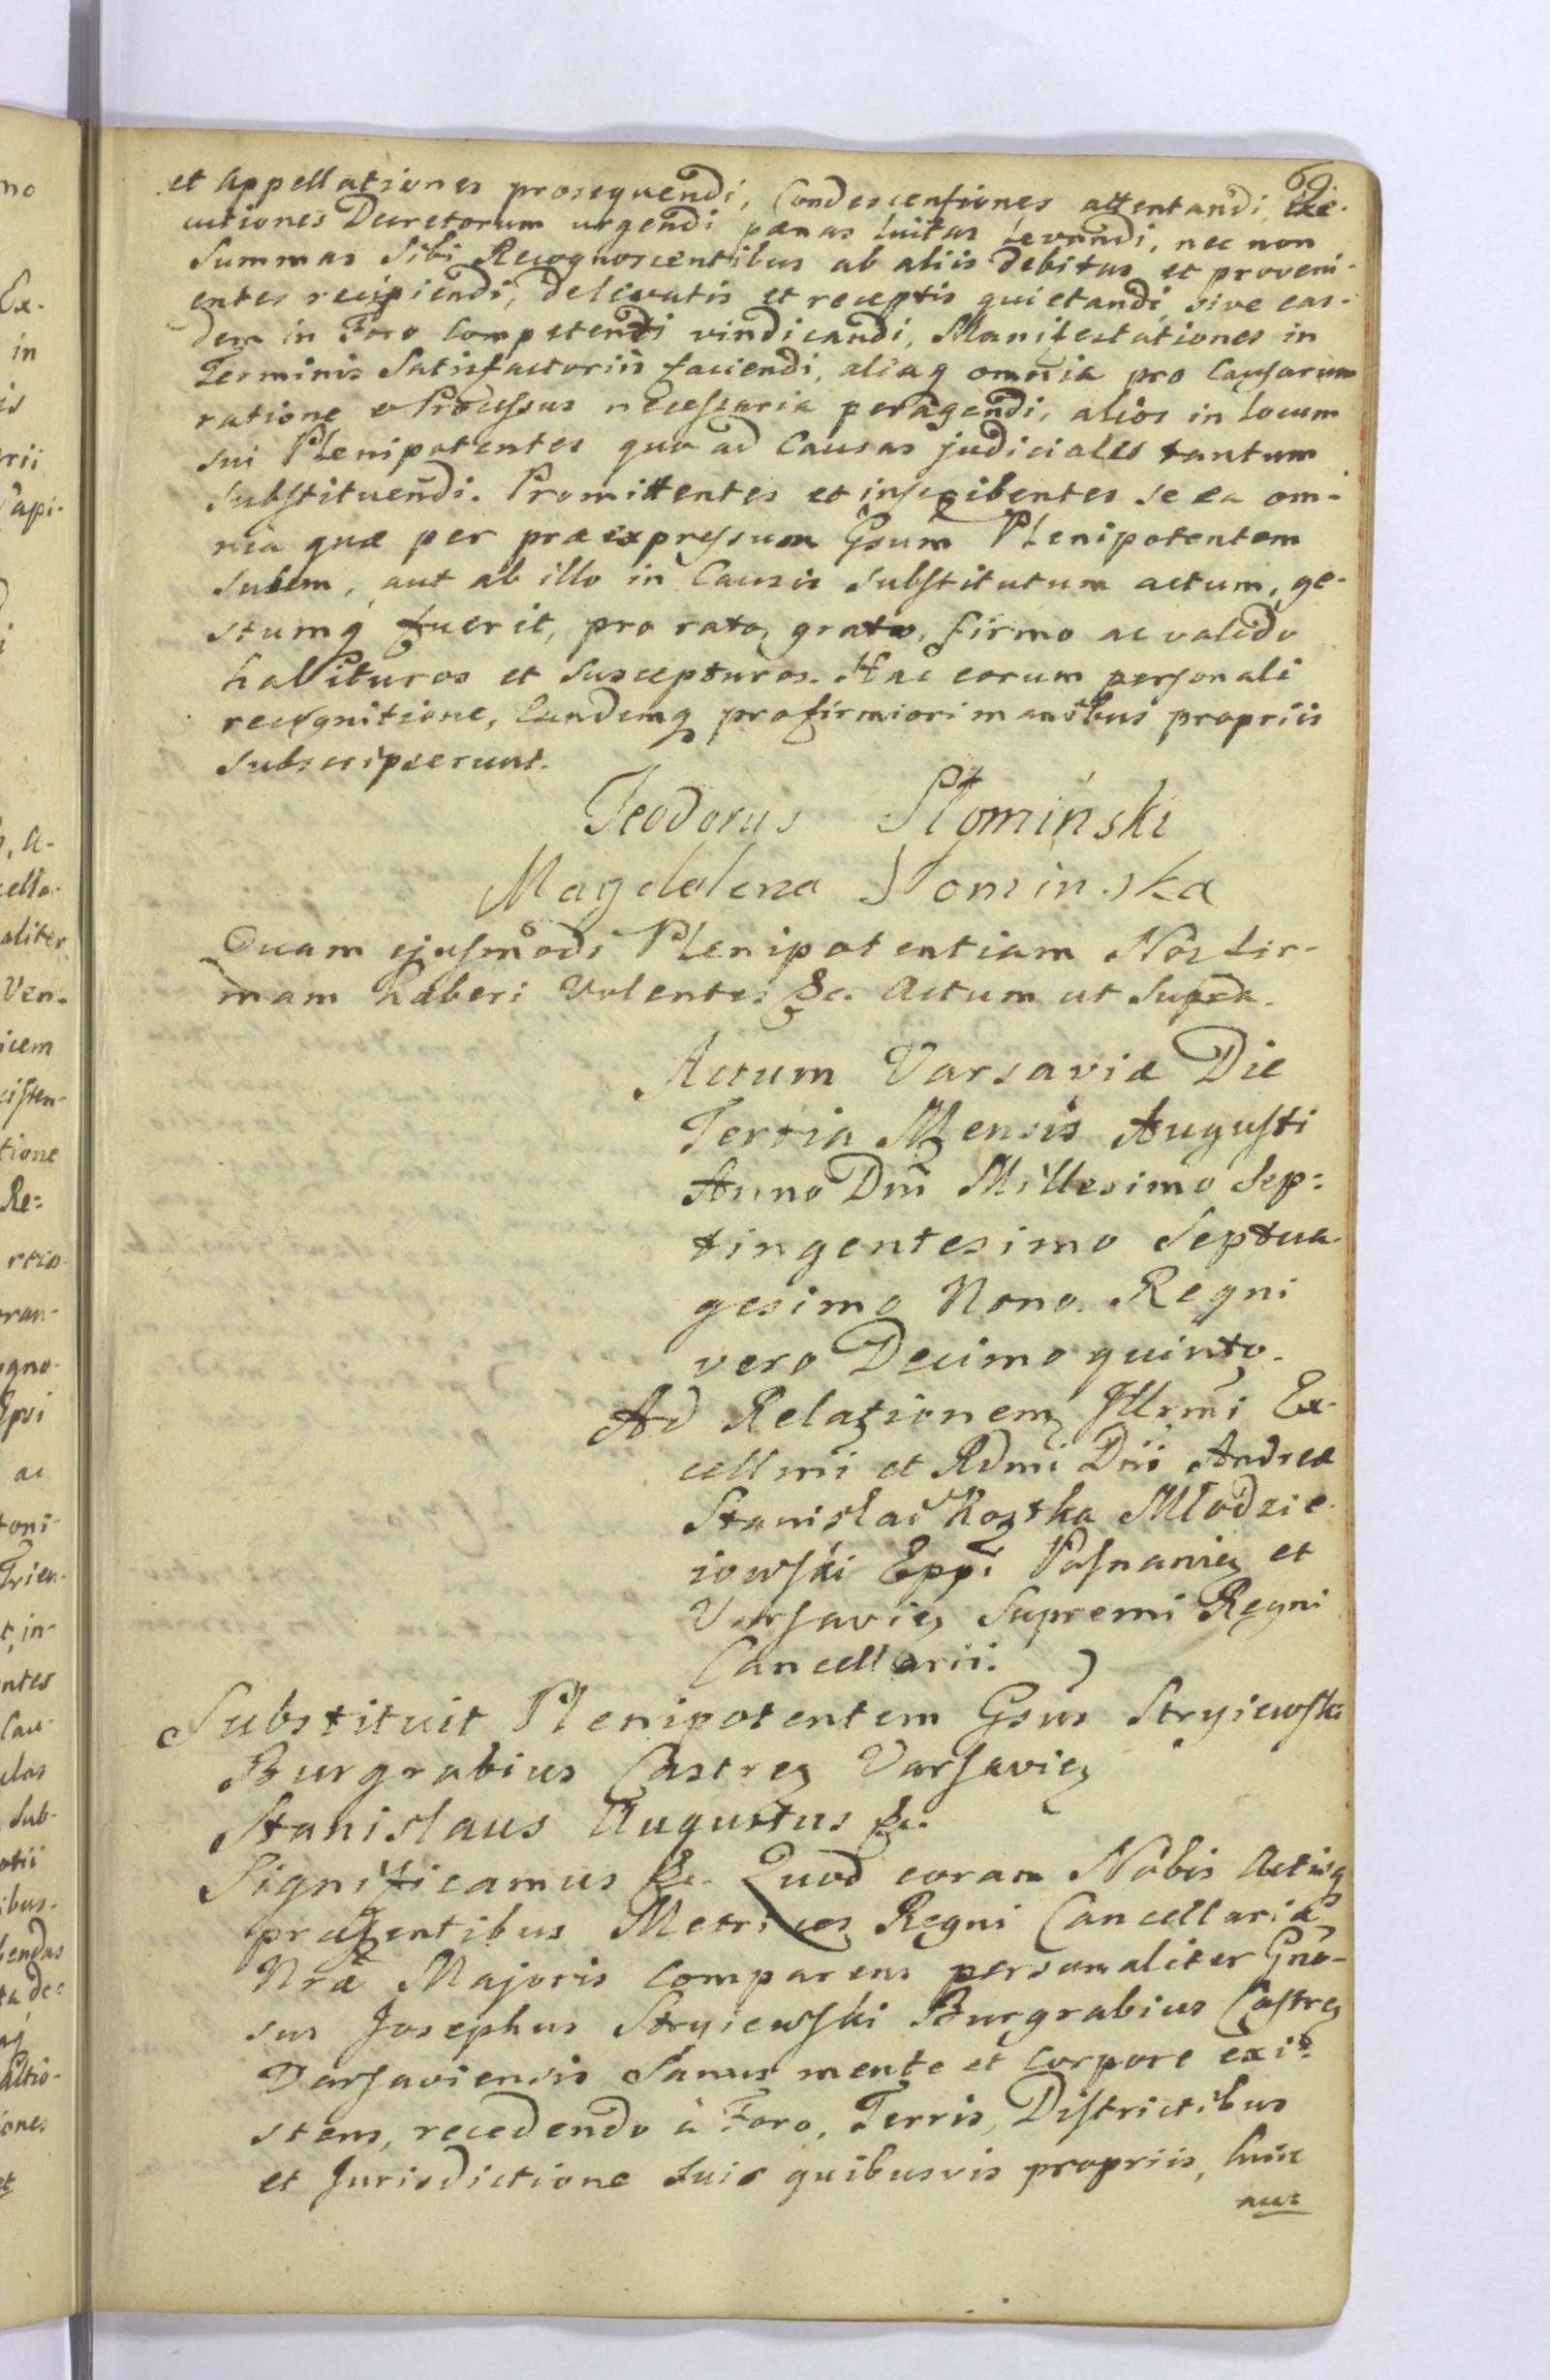 69.
et Appellationes prosequendi, Condescensiones attentandi, Exe-
cutiones Decretorum urgendi pænas luitas levandi, nec non
Summas Sibi Recognoscentibus ab aliis debitas et proveni-
entes recipiendi, de levatis et receptis quietandi, sive eas-
dem in Foro Competenti vindicandi, Manifestationes in
Terminis Satisfactoriis faciendi, aliaq omnia pro Causarum
ratione et Processus necessaria peragendi, alios in locum
sui Plenipotentes quo ad Causas judiciales tantum
substituendi. Promittentes et inscribentes se ea om-
nia quæ per præexpressum Gsum Plenipotentem
suum, aut ab illo in Causis substitutum actum, ge-
stumq fuerit, pro rato, grato, firmo ac valido
habituros et suscepturos. Hac eorum personali
recognitione, Eandemq pro firmiori manibus propriis
subscripserunt.
Teodorus Słomiński
Magdalena Słominska
Quam ejusmodi Plenipotentiam Nos fir-
mam haberi Volentes &c. Actum ut Supra.
Actum Varsaviæ Die
Tertia Mensis Augusti
Anno Dni Millesimo Sep-
tingentesimo Septua-
gesimo Nono. Regni
vero Decimo quinto.
Ad Relationem Illrmi Ex-
cellmi et Rdmi Dni Andreæ
Stanislai Kostka Młodzie-
iowski Eppi Posnanie et
Varsavie, Supremi Regni
Cancellarii.
Substituit Plenipotentem Gsus Stryiewski
Burgrabius Castren Varsavien
Stanislaus Augustus &c.
Significamus &c. Quod coram Nobis Actisq
præsentibus Metrices Regni Cancellariæ
Nræ Majoris Comparens personaliter Gno-
sus Josephus Stryiewski Burgrabius Castren
Varsaviensis Sanus mente et Corpore exi-
stens, recedendo à Foro, Terris, Districtibus
et Jurisdictione suis quibusvis propriis, huic